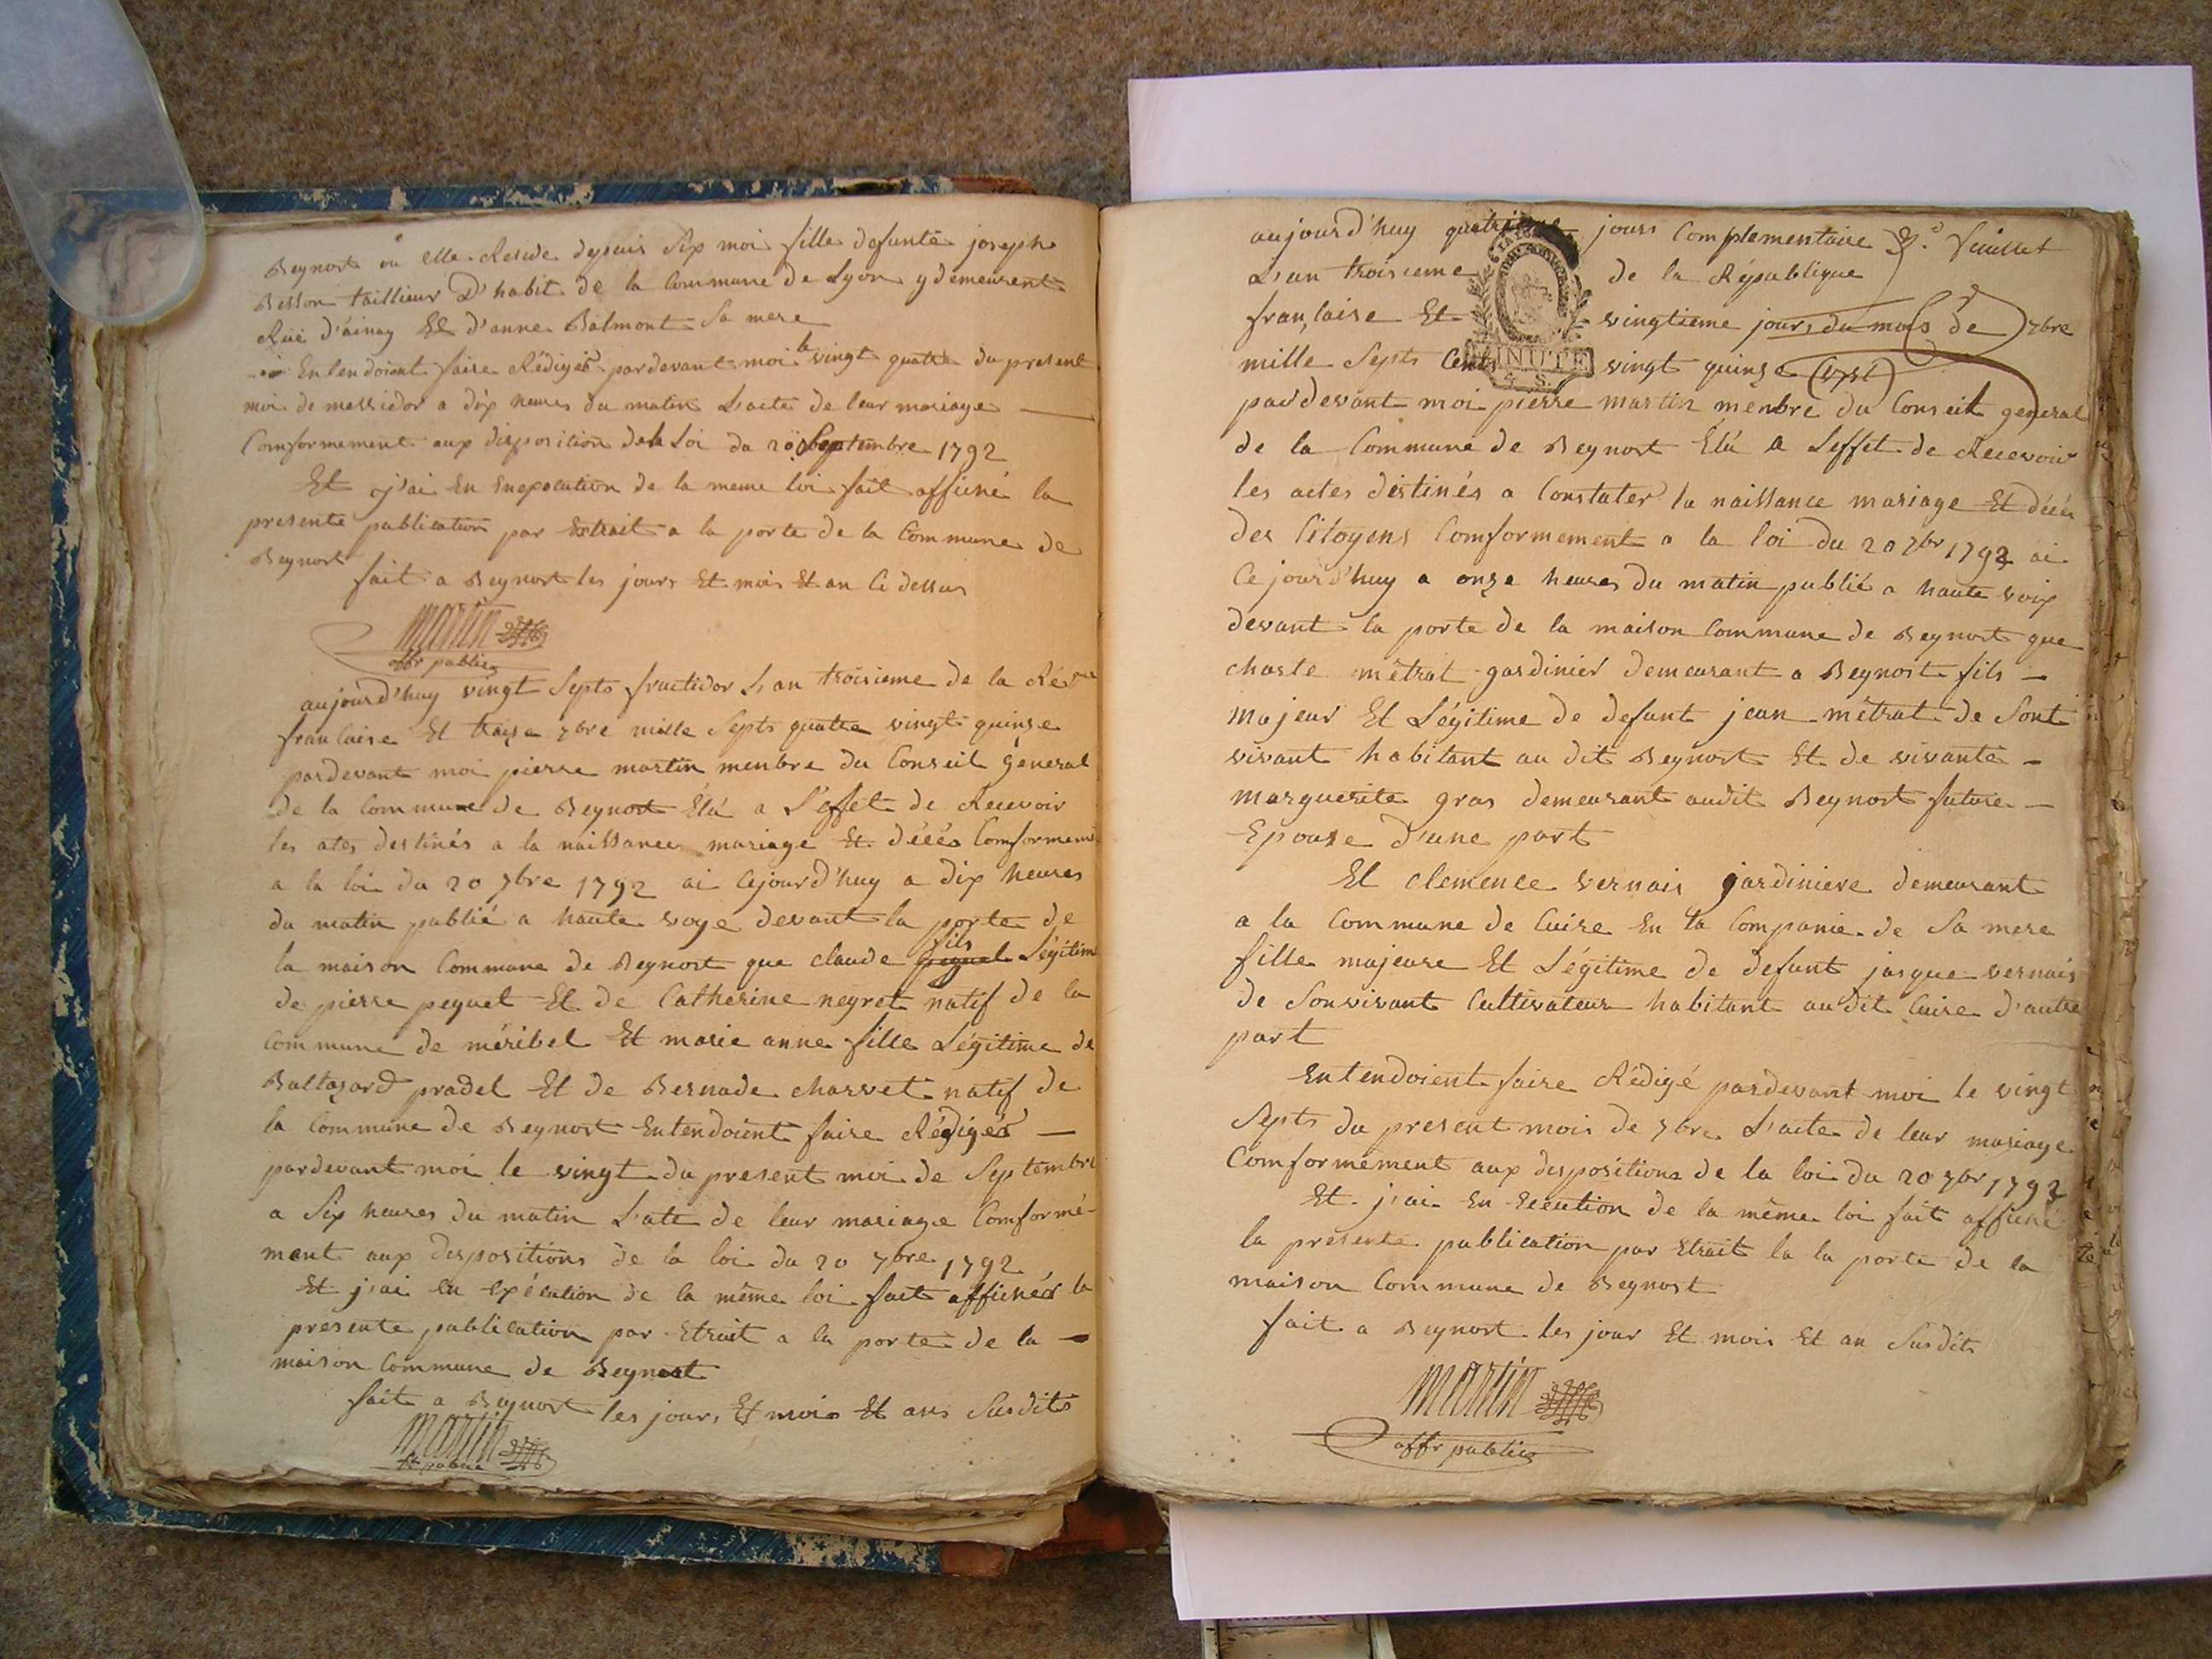 Beynost ou elle Reside depuis Six moi fille defunte joseph
Besson taillieur D'habit de la Commune de Lyon y demeurent
Rüe d'ainay Et d'anne Balmont Sa mere
Entendoient faire Rédiger pardevant moi le vingt quatre du present
moi de messidor a dix heures du matin L'acte de leur mariage
Comformement aux disposition dela Loi du 20 Septembre 1792
Et j'ai En Enexecution de la meme loi fait affiché la
presente publication par Extrait a la porte de la Commune de
Beynost
fait a Beynost les jours Et mois Et an Ci dessus
martin
offr public
aujourd'huy vingt Septs fructidor L'an troisieme de la Rép
francaise Et treize 7bre mille Septs quatre vingt quinze
pardevant moi pierre martin menbre du Conseil géneral
de la Commune de Beynost Élu a L'effet de Recevoir
les ates destinés a la naissance mariage Et décés Comformem
a la loi du 20 7bre 1792 ai Cejourd'huy a dix heures
du matin publié a haute voye devant la porte de
la maison Commune de Beynost que claude fils Légitim
de pierre pequet Et de Catherine neyret natif de la
Commune de méribel Et marie anne fille Légitime de
Baltazard pradel Et de Bernade charvet natif de
la Commune de Beynost Entendoient faire Rédiger
pardevant moi le vingt du present moi de Septembre
a Six heures du matin L'ate de leur mariage Comformé-
ment aux dispositions de la loi du 20 7bre 1792
Et j'ai En Expécution de la même loi fait afficher la
presente publication par Etrait a la porte de la
maison Commune de Beynost
fait a Beynost les jours Et mois Et ans Susdits
martin
aujourd'huy quatrieme jours Complementaire 3.e feuillet
L'an troisieme de la République
française Et vingtieme jours du mois de 7bre
mille Septs Cents vingt quinze
MINUTE
4 S.
pardevant moi pierre martin ménbre du Conseil géneral
de la Commune de Beynost Élu a L'effet de Recevoir
les actes déstinés a Constater la naissance mariage Et décés
des Citoyens Comformement a la loi du 20 7br 1792 ai
Ce jourd'huy a onze heures du matin publié a haute voix
devant la porte de la maison Commune de Beynost que
charle métrat gardinier demeurant a Beynost fils
majeur Et Légitime de defunt jean métrat de Sont
vivant habitant au dit Beynost Et de vivante
marguerite gras demeurant audit Beynost future
Epouse d'une part
Et clemence vernais jardiniere demeurant
a la Commune de Cuire En la Companie de Sa mere
fille majeure Et Légitime de defunt jaque vernais
de Sonvivant Cultivateur habitant au dit Cuire d'autre
part
Entendoient faire Rédigé pardevant moi le vingt
Septs du present mois de 7bre L'acte de leur mariage
Comformément aux dispositions de la loi du 20 7br 1792
Et j'ai En Exécution de la même loi fait affiché
la présente publication par Etrait la la porte de la
maison Commune de Beynost
fait a Beynost les jour Et mois Et an Susdits
martin
offr public